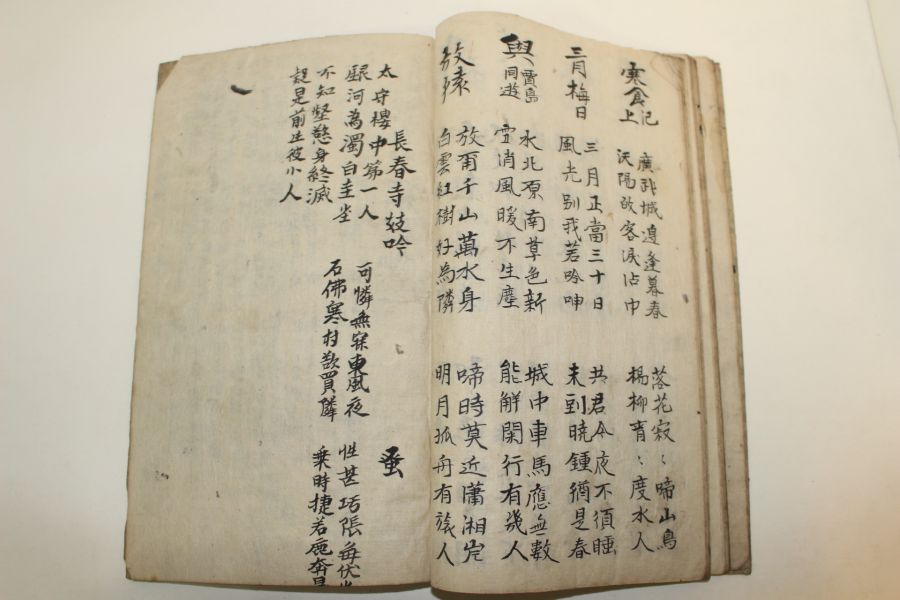 寒食汜上
廣武城邊逢暮春 落花寂〻啼山鳥
汶陽故客淚沾巾 楊柳靑〻度水人
三月梅日
三月正當三十日 共君今夜不須睡
風光別我若吟呻 未到曉鍾猶是春
與賈島同遊
水北原南草色新 城中車馬應無數
雪消風暖不生塵 能解閑行有幾人
放猿
放爾千山萬水身 啼時莫近瀟湘岸
白雲紅樹好為隣 明月孤舟有旅人
長春寺妓吟
太守樓中第一人
銀河為濁白圭坐
不知堅慈身終滅
疑是前生彼小人
可憐無寐東風夜
石佛寒村欲買隣
蚤
性甚巧張每伏
乘時捷若鹿奔